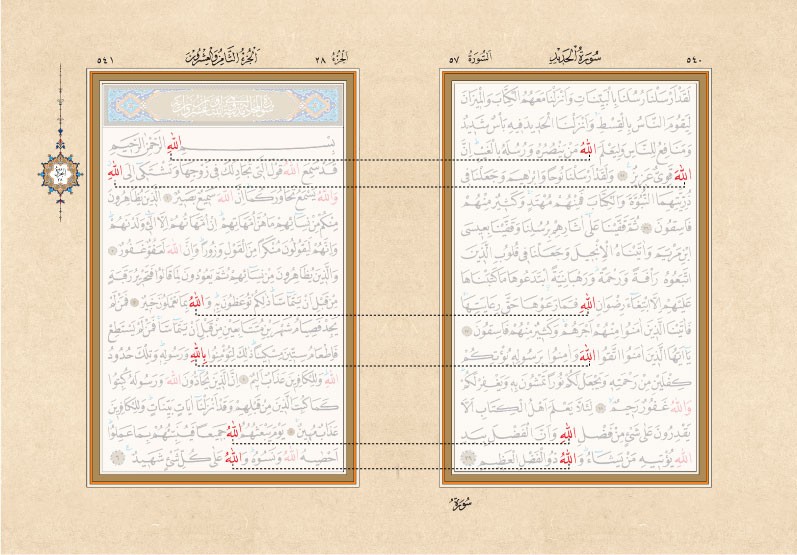 ٥٤٠
سورة الحديد
السورة ٥٧
لقد ارسلنا رسلنا بالبينات وانزلنا معهم الكتاب والميزان
ليقوم الناس بالقسط وانزلنا الحديد فيه بأس شديد
ومنافع للناس وليعلم الله من ينصره ورسله بالغيب ان
الله قوى عزيز ٢٥ ولقد ارسلنا نوحا وابرهيم وجعلنا فى
ذريتهما النبوة والكتاب فمنهم مهتد وكثير منهم
فاسقون ٢٦ ثم قفينا على اثارهم برسلنا وقفينا بعيسى
ابن مريم واتيناه الانجيل وجعلنا فى قلوب الذين
اتبعوه رأفة ورحمة ورهبانية ابتدعوها ما كتبناها
عليهم الا ابتغاء رضوان الله فما رعوها حق رعايتها
فاتينا الذين امنوا منهم اجرهم وكثير منهم فاسقون ٢٧
يا ايها الذين امنوا اتقوا الله وامنوا برسوله يؤتكم
كفلين من رحمته ويجعل لكم نورا تمشون به ويغفر لكم
والله غفور رحيم ٢٨ لئلا يعلم اهل الكتاب الا
يقدرون على شىء من فضل الله وان الفضل بيد
الله يؤتيه من يشاء والله ذو الفضل العظيم ٢٩
سورة
الجزء ٢٨
الجزء الثامن والعشرون
٥٤١
بسم الله الرحمن الرحيم
قد سمع الله قول التى تجادلك فى زوجها وتشتكى الى الله
والله يسمع تحاوركما ان الله سميع بصير ١ الذين يظاهرون
منكم من نسائهم ما هن امهاتهم ان امهاتهم الا الئ ولدنهم
وانهم ليقولون منكرا من القول وزورا وان الله لعفو غفور ٢
والذين يظاهرون من نسائهم ثم يعودون لما قالوا فتحرير رقبة
من قبل ان يتماسا ذلكم توعظون به والله بما تعملون خبير ٣ فمن لم
يجد فصيام شهرين متتابعين من قبل ان يتماسا فمن لم يستطع
فاطعام ستين مسكينا ذلك لتؤمنوا بالله ورسوله وتلك حدود
الله وللكافرين عذاب اليم ٤ ان الذين يحادون الله ورسوله كبتوا
كما كبت الذين من قبلهم وقد انزلنا ايات بينات وللكافرين
عذاب مهين ٥ يوم يبعثهم الله جميعا فينبئهم بما عملوا
احصيه الله ونسوه والله على كل شىء شهيد ٦